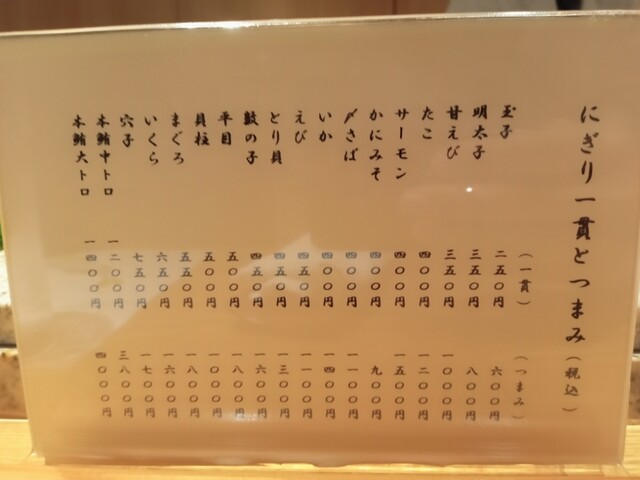 にぎり一貫とつまみ(税込)
(一貫)
(つまみ)
玉子 二五〇円 六〇〇円
明太子 三五〇円 八〇〇円
甘えび 三五〇円 一〇〇〇円
たこ 四〇〇円 一二〇〇円
サーモン 四〇〇円 一五〇〇円
かにみそ 四〇〇円 九〇〇円
〆さば 四〇〇円 一一〇〇円
いか 四〇〇円 一四〇〇円
えび 四五〇円 一一〇〇円
とり貝 四五〇円 一三〇〇円
数の子 四五〇円 一六〇〇円
平目 五〇〇円 一八〇〇円
貝柱 五〇〇円 一〇〇〇円
まぐろ 五五〇円 一八〇〇円
いくら 六五〇円 一六〇〇円
穴子 七五〇円 一七〇〇円
本鮪中トロ 一二〇〇円 三八〇〇円
本鮪大トロ 一四〇〇円 四〇〇〇円